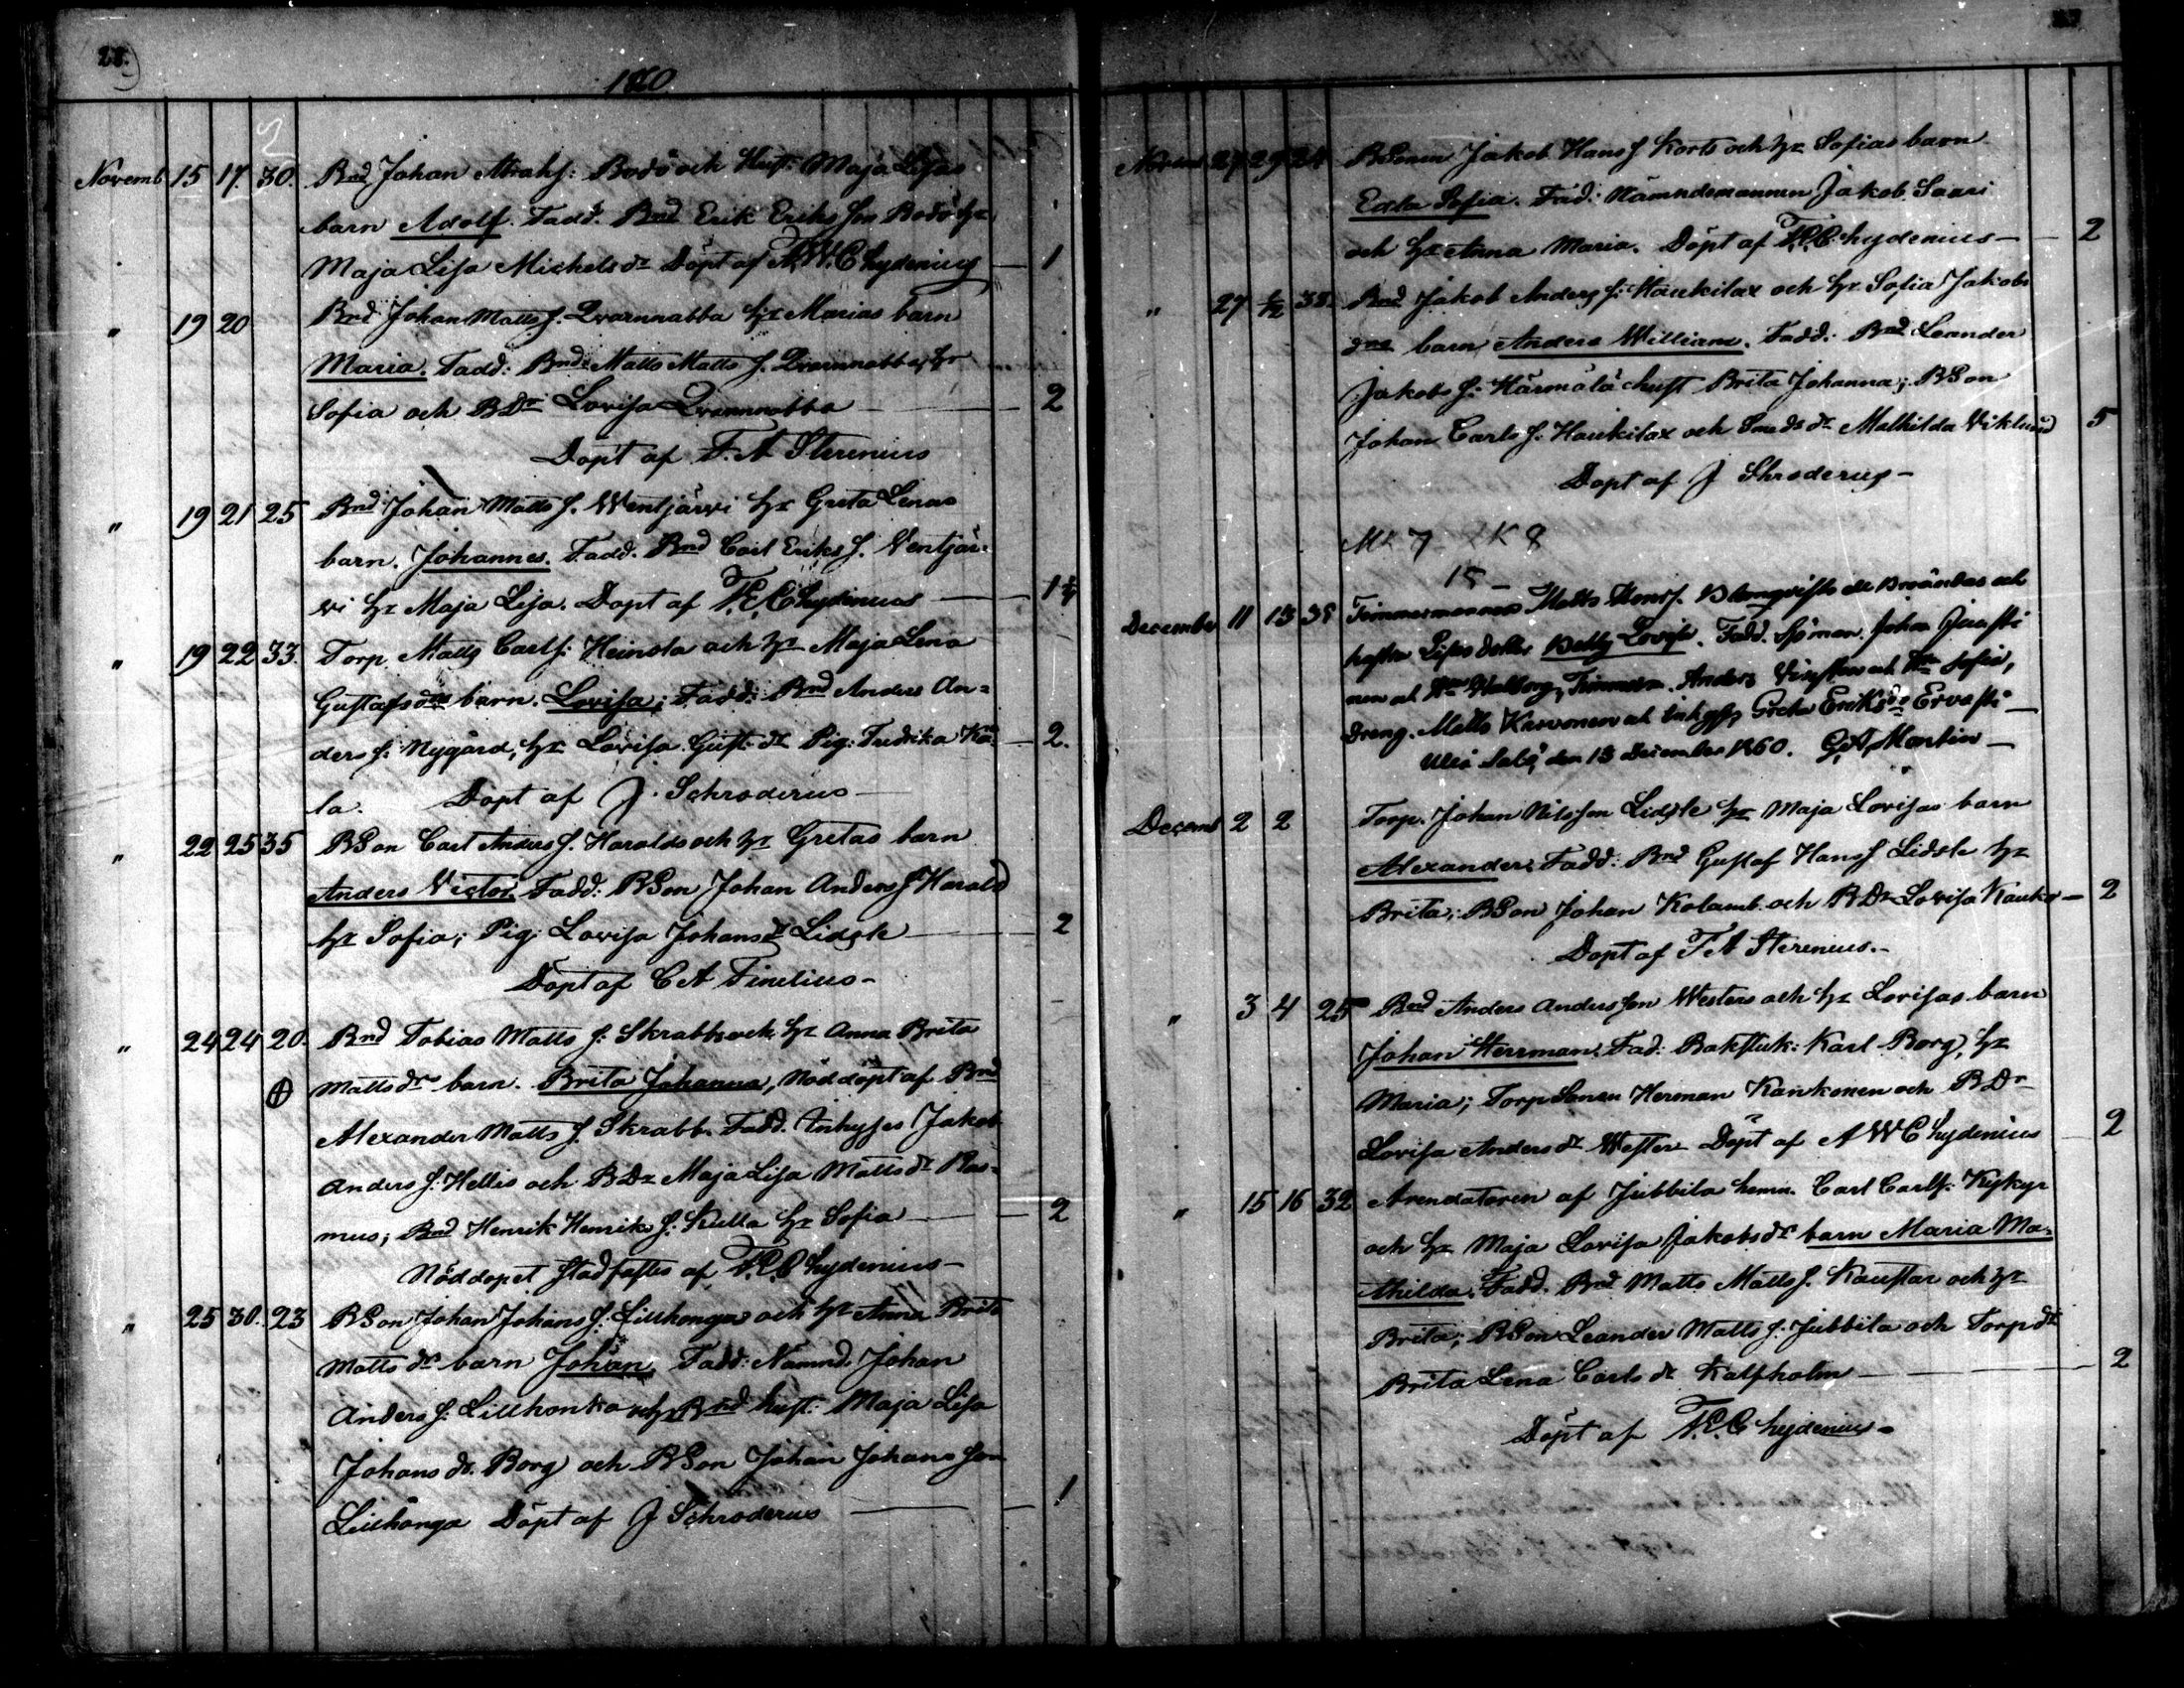 28.
1860
Novemb. 15 17. 30. Bnd Johan Abrahs: Bodö och Hust: Maja Lisas
barn Adolf. Fadd: Bnd Erik Eriks son Bodö hr
Maja Lisa Michelsdr Döpt af A.W. Chydenius 1
" 19 20 Bnd Johan Matts s. Qvarnnabba hr Marias barn
Maria. Fadd: Bnd Matts Matts s. Qvarnnabba, hr
Sofia och BDr Lovisa Qvarnnabba 2
Döpt af F. A Sterenius
" 19 21 25 Bnd Johan Matts s. Wentjärvi hr Greta Lenas
barn. Johannes. Fadd. Bnd Carl Eriks s. Ventjär-
vi hr Maja Lisa. Döpt af F.E. Chydenius
" 19 22 33. Torp. Matts Carls: Heinola och hr Maja Lena
Gustafsdrs barn. Lovisa; Fadd: Bnd Anders An-
ders s: Nygård, hr Lovisa Gust: dr Pig: Fredrika Ka- 2.
la. Döpt af J. Schroderus
" 22 25 35 BSon Carl Anders s. Haralds och hr Gretas barn
Anders Victor. Fadd: BSon Johan Anders s. Harald
hr Sofia; Pig: Lovisa Johansdr Lidsle 2
Döpt af C A Finelius -
" 24 24 20. Bnd Tobias Matts s: Skrabb och hr Anna Brita
Mattsdrs barn. Brita Johanna, Nöddöpt af Bnd
Alexander Matts s. Skrabb. Fadd. Inhyses Jakob
Anders s: Hellis och BDr Maja Lisa Mattsdr Ras-
mus; Bnd Henrik Henriks s. Kulla hr Sofia 2
Nöddopet stadfästes af F.E. Chydenius -
" 25 30. 23 BSon Johan Johans s: Lillhonga och hr Anna Brita
Mattsdrs barn Johan Fadd: Nämnd. Johan
Anders s: Lillhonka och Bnd hust: Maja Lisa
Johans dr. Borg och BSon Johan Johans son
Lillhonga Döpt af J Schroderus 1
Novemb 27 29 24 BSonen Jakob Hans s Korts och hr Sofias barn
Edla Sofia. Fad: Nämndemannen Jakob Saari
och hr Anna Maria. Döpt af F.E.C. hydenius - 2
" 27 1/2 38. Bnd Jakob Anders s: Haukilax och hr Sofia Jakobs
drs barn Anders William. Fadd: Bnd Leander
Jakobs s: Härmälä hust Brita Johanna; BSon
Johan Carls s: Haukilax och Smeds dr Mathilda Viklund 5
Döpt af J Shroderus -
15 -
December 11 13 38 Timmermannen Matts Hans s. Blomqvists och
hustru Lisas dotter Betty Lovisa. Fadd. Sjöman Johan
och Hu Walborg, Timmerm. Anders och Hu Sofia,
Dreng. Matts Karvonen och Inhyses Greta Eriksdr Ervasti -
Uleå Salo, den 13 December 1860. G.A. Martin -
Decemb 2 2 Torp. Johan Nilsson Lidsle hr Maja Lovisas barn
Alexander. Fadd: Bnd Gustaf Hans s Lidsle hr
Brita; BSon Johan Kolamb. och BDr Lovisa Kauko - 2
Döpt af F A Sterenius. -
" 3 4 25 Bnd Anders Andersson Westers och hr Lovisas barn
Johan Herrman. Fad: Backstuk: Karl Borg, hr
Maria; TorpSonen Herman Kankonen och BDr
Lovisa Andersdr Wester Döpt af A W Chydenius 2
" 15 16 32 Arendatoren af Jubbila hemn. Carl Carls: Kykyr
och hr Maja Lovisa Jakobsdrs barn Maria Ma-
thilda. Fadd. Bnd Matts Matts s. Kaustar och hr
Brita; BSon Leander Matts s. Jubbila och Torpdr
Brita Lena Carls dr Kalfholm 2
Döpt af F.E. Chydenius -